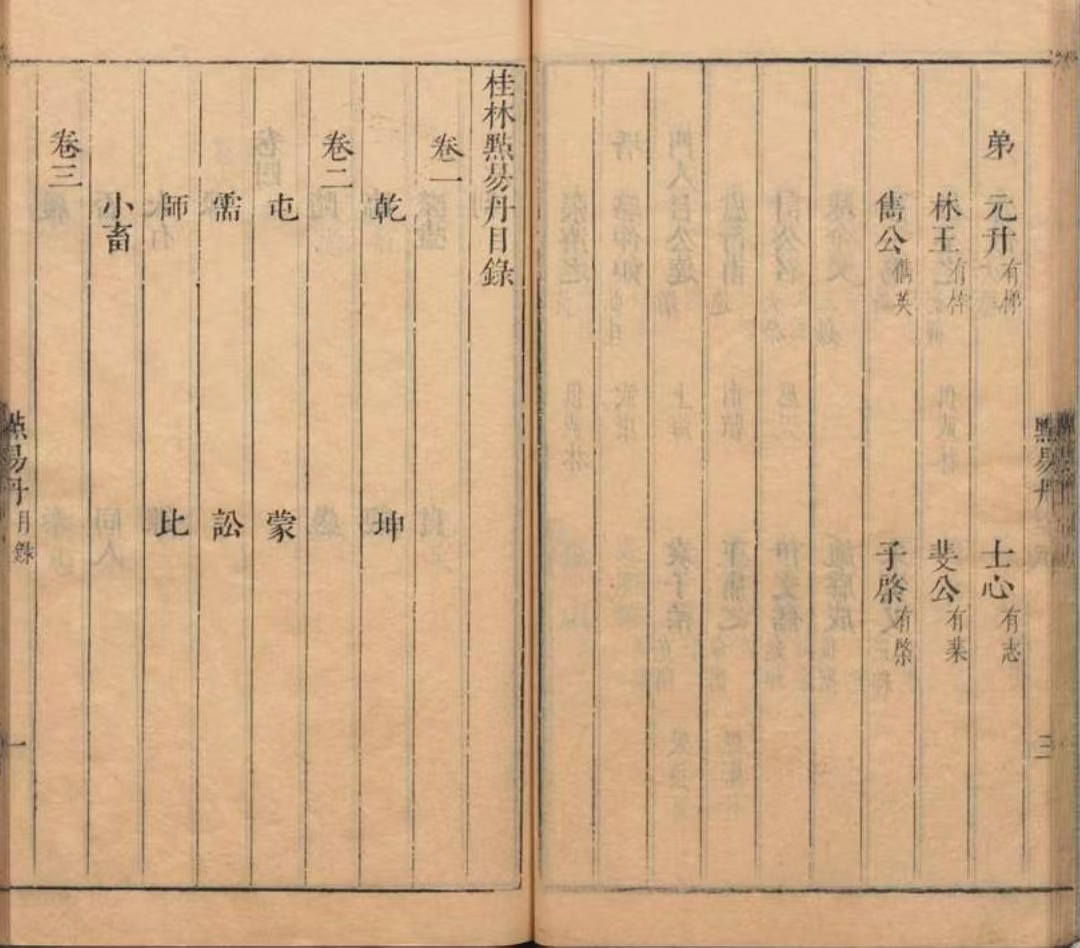 弟
元升 有梛
士心 有志
林王 有梓
斐公 有棐
雋公 儁英
子棨 有棨
點易丹
三
桂林點易丹目錄
卷一
乾 坤
卷二
屯 蒙
需 訟
師 比
小畜
卷三
點易丹 目錄
一